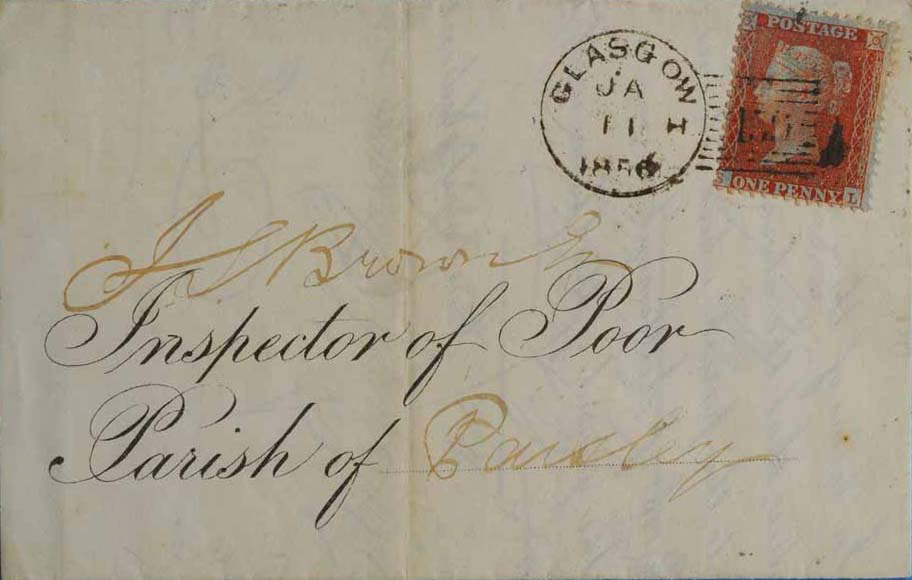 POSTAGE
ONE PENNY
L
GLASGOW
JA
11 I
1856
J Brown
Inspector of Poor
Parish of Paisley